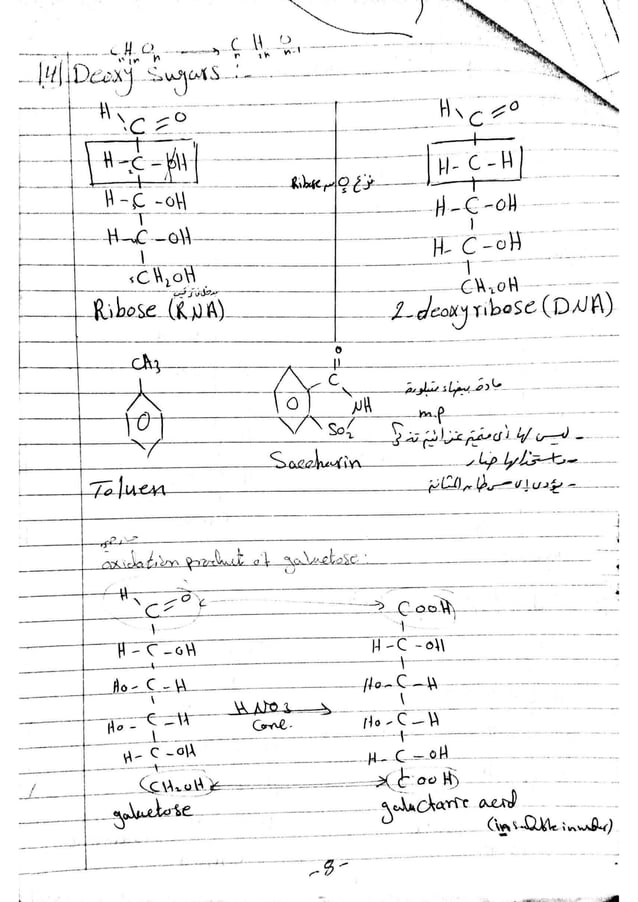 CnH2nOn → CnH2nOn-1
14 Deoxy Sugars :-
H
C=O
H-C-OH
H-C-OH
H-C-OH
CH2OH
Ribose (RNA)
نزع O من Ribose
H
C=O
H-C-H
H-C-OH
H-C-OH
CH2OH
2-deoxyribose (DNA)
CH3
Toluen
O
C
NH
SO2
Saccharin
مادة بيضاء متبلورة
m.p
- ليس لها أي قيمة غذائية
- استخدامها ضار
- يؤدي إلى سرطان المثانة
oxidation product of galactose:
H
C=O
H-C-OH
Ho-C-H
Ho-C-H
H-C-OH
CH2OH
galactose
HNO3
Conc.
COOH
H-C-OH
Ho-C-H
Ho-C-H
H-C-OH
COOH
galactaric acid
(insoluble in water)
-8-